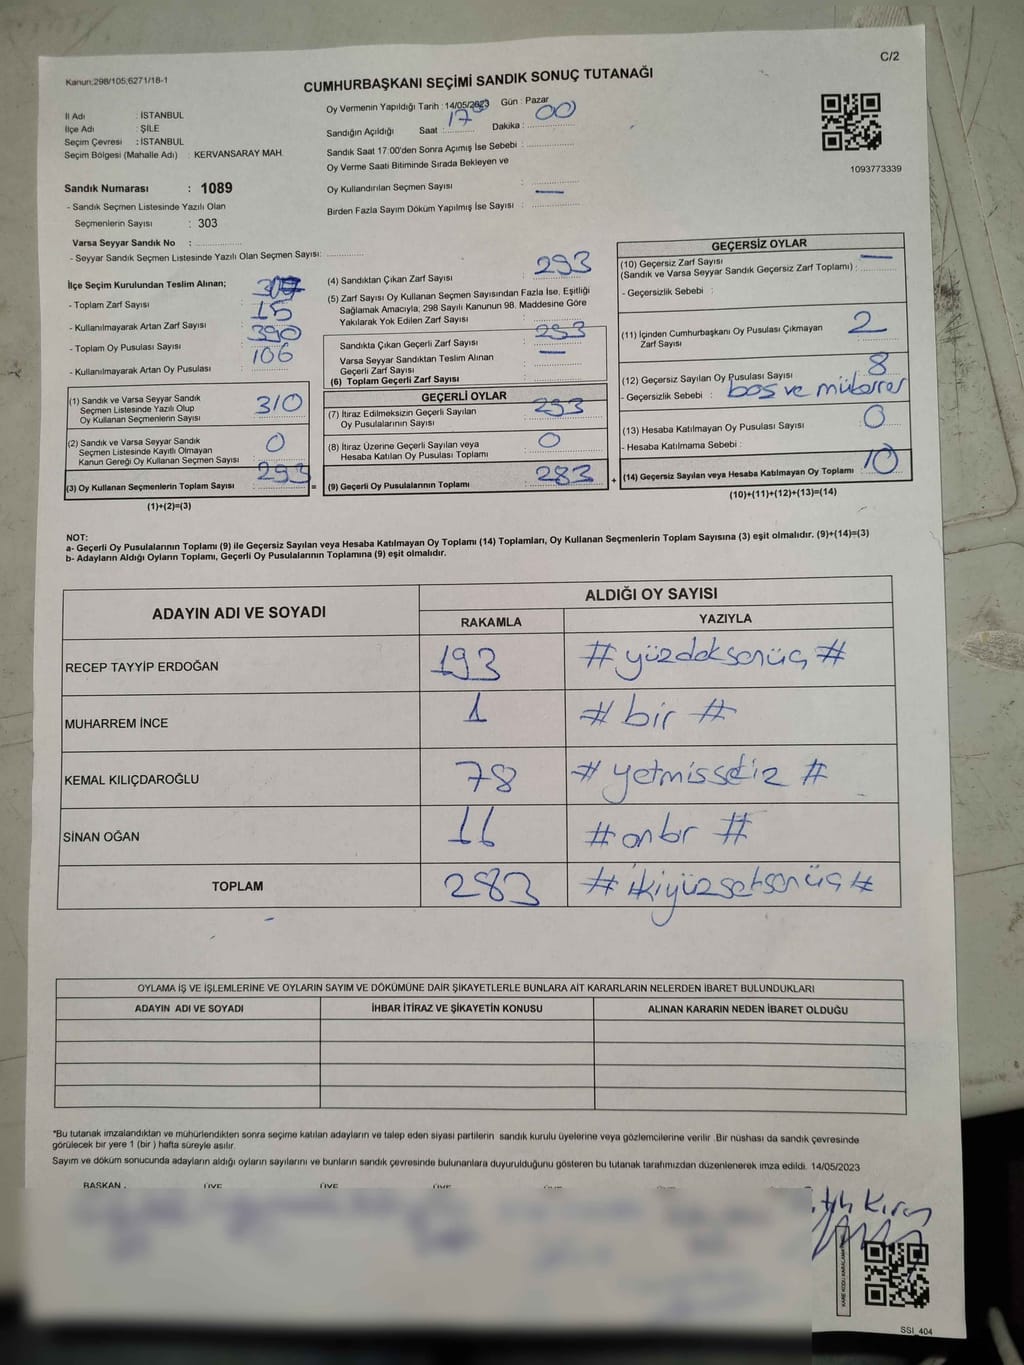 C/2
Kanun:298/105,6271/18-1
CUMHURBAŞKANI SEÇİMİ SANDIK SONUÇ TUTANAĞI
İl Adı : İSTANBUL
İlçe Adı : ŞİLE
Seçim Çevresi : İSTANBUL
Seçim Bölgesi (Mahalle Adı) : KERVANSARAY MAH.
Sandık Numarası : 1089
- Sandık Seçmen Listesinde Yazılı Olan
Seçmenlerin Sayısı : 303
Varsa Seyyar Sandık No :
- Seyyar Sandık Seçmen Listesinde Yazılı Olan Seçmen Sayısı:
Oy Vermenin Yapıldığı Tarih : 14/05/2023 Gün : Pazar
Sandığın Açıldığı Saat : 17 Dakika : 00
Sandık Saat 17:00'den Sonra Açımış İse Sebebi :
Oy Verme Saati Bitiminde Sırada Bekleyen ve
Oy Kullandırılan Seçmen Sayısı :
Birden Fazla Sayım Döküm Yapılmış İse Sayısı : —
1093773339
İlçe Seçim Kurulundan Teslim Alınan;
- Toplam Zarf Sayısı
- Kullanılmayarak Artan Zarf Sayısı 15
- Toplam Oy Pusulası Sayısı 390
- Kullanılmayarak Artan Oy Pusulası 106
(1) Sandık ve Varsa Seyyar Sandık
Seçmen Listesinde Yazılı Olup
Oy Kullanan Seçmenlerin Sayısı 310
(2) Sandık ve Varsa Seyyar Sandık
Seçmen Listesinde Kayıtlı Olmayan
Kanun Gereği Oy Kullanan Seçmen Sayısı 0
(3) Oy Kullanan Seçmenlerin Toplam Sayısı 293 =
(1)+(2)=(3)
(4) Sandıktan Çıkan Zarf Sayısı 293
(5) Zarf Sayısı Oy Kullanan Seçmen Sayısından Fazla İse, Eşitliği
Sağlamak Amacıyla, 298 Sayılı Kanunun 98. Maddesine Göre
Yakılarak Yok Edilen Zarf Sayısı :
Sandıkta Çıkan Geçerli Zarf Sayısı : 293
Varsa Seyyar Sandıktan Teslim Alınan
Geçerli Zarf Sayısı : —
(6) Toplam Geçerli Zarf Sayısı :
GEÇERLİ OYLAR
(7) İtiraz Edilmeksizin Geçerli Sayılan
Oy Pusulalarının Sayısı : 293
(8) İtiraz Üzerine Geçerli Sayılan veya
Hesaba Katılan Oy Pusulası Toplamı : 0
(9) Geçerli Oy Pusulalarının Toplamı : 283 +
GEÇERSİZ OYLAR
(10) Geçersiz Zarf Sayısı
(Sandık ve Varsa Seyyar Sandık Geçersiz Zarf Toplamı) : —
- Geçersizlik Sebebi :
(11) İçinden Cumhurbaşkanı Oy Pusulası Çıkmayan
Zarf Sayısı : 2
(12) Geçersiz Sayılan Oy Pusulası Sayısı : 8
- Geçersizlik Sebebi : boş ve mükerrer
(13) Hesaba Katılmayan Oy Pusulası Sayısı : 0
- Hesaba Katılmama Sebebi :
(14) Geçersiz Sayılan veya Hesaba Katılmayan Oy Toplamı : 10
(10)+(11)+(12)+(13)=(14)
NOT:
a- Geçerli Oy Pusulalarının Toplamı (9) ile Geçersiz Sayılan veya Hesaba Katılmayan Oy Toplamı (14) Toplamları, Oy Kullanan Seçmenlerin Toplam Sayısına (3) eşit olmalıdır. (9)+(14)=(3)
b- Adayların Aldığı Oyların Toplamı, Geçerli Oy Pusulalarının Toplamına (9) eşit olmalıdır.
ADAYIN ADI VE SOYADI ALDIĞI OY SAYISI
RAKAMLA YAZIYLA
RECEP TAYYİP ERDOĞAN 193 #yüzdoksanüç#
MUHARREM İNCE 1 #bir#
KEMAL KILIÇDAROĞLU 78 #yetmissekiz#
SİNAN OĞAN 11 #onbir#
TOPLAM 283 #ikiyüzseksenüç#
OYLAMA İŞ VE İŞLEMLERİNE VE OYLARIN SAYIM VE DÖKÜMÜNE DAİR ŞİKAYETLERLE BUNLARA AİT KARARLARIN NELERDEN İBARET BULUNDUKLARI
ADAYIN ADI VE SOYADI İHBAR İTİRAZ VE ŞİKAYETİN KONUSU ALINAN KARARIN NEDEN İBARET OLDUĞU
*Bu tutanak imzalandıktan ve mühürlendikten sonra seçime katılan adayların ve talep eden siyasi partilerin sandık kurulu üyelerine veya gözlemcilerine verilir. Bir nüshası da sandık çevresinde
görülecek bir yere 1 (bir) hafta süreyle asılır.
Sayım ve döküm sonucunda adayların aldığı oyların sayılarını ve bunların sandık çevresinde bulunanlara duyurulduğunu gösteren bu tutanak tarafımızdan düzenlenerek imza edildi. 14/05/2023
BAŞKAN ÜYE ÜYE ÜYE
SSI_404